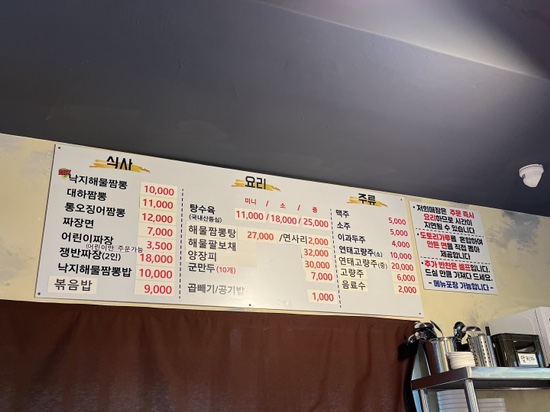 식사
낙지해물짬뽕 10,000
대하짬뽕 11,000
통오징어짬뽕 12,000
짜장면 7,000
어린이짜장 3,500
(어린이만 주문가능)
쟁반짜장(2인) 18,000
낙지해물짬뽕밥 10,000
볶음밥 9,000
요리
미니 / 소 / 중
탕수육 11,000 / 18,000 / 25,000
(국내산등심)
해물짬뽕탕 27,000 /면사리2,000
해물쟐보채 32,000
양장피 30,000
군만두(10개) 7,000
곱빼기/공기밥 1,000
주류
맥주 5,000
소주 5,000
이과두주 4,000
연태고량주(소) 10,000
연태고량주(중) 20,000
고량주 6,000
음료수 2,000
* 저희매장은 주문 즉시
요리하므로 시간이
지연될 수 있습니다.
* 도토리가루를 혼합하여
만든 면을 직접 뽑아
제공합니다.
* 추가 반찬은 셀프입니다.
드실 만큼 가져다 드세요
- 메뉴포장 가능합니다 -